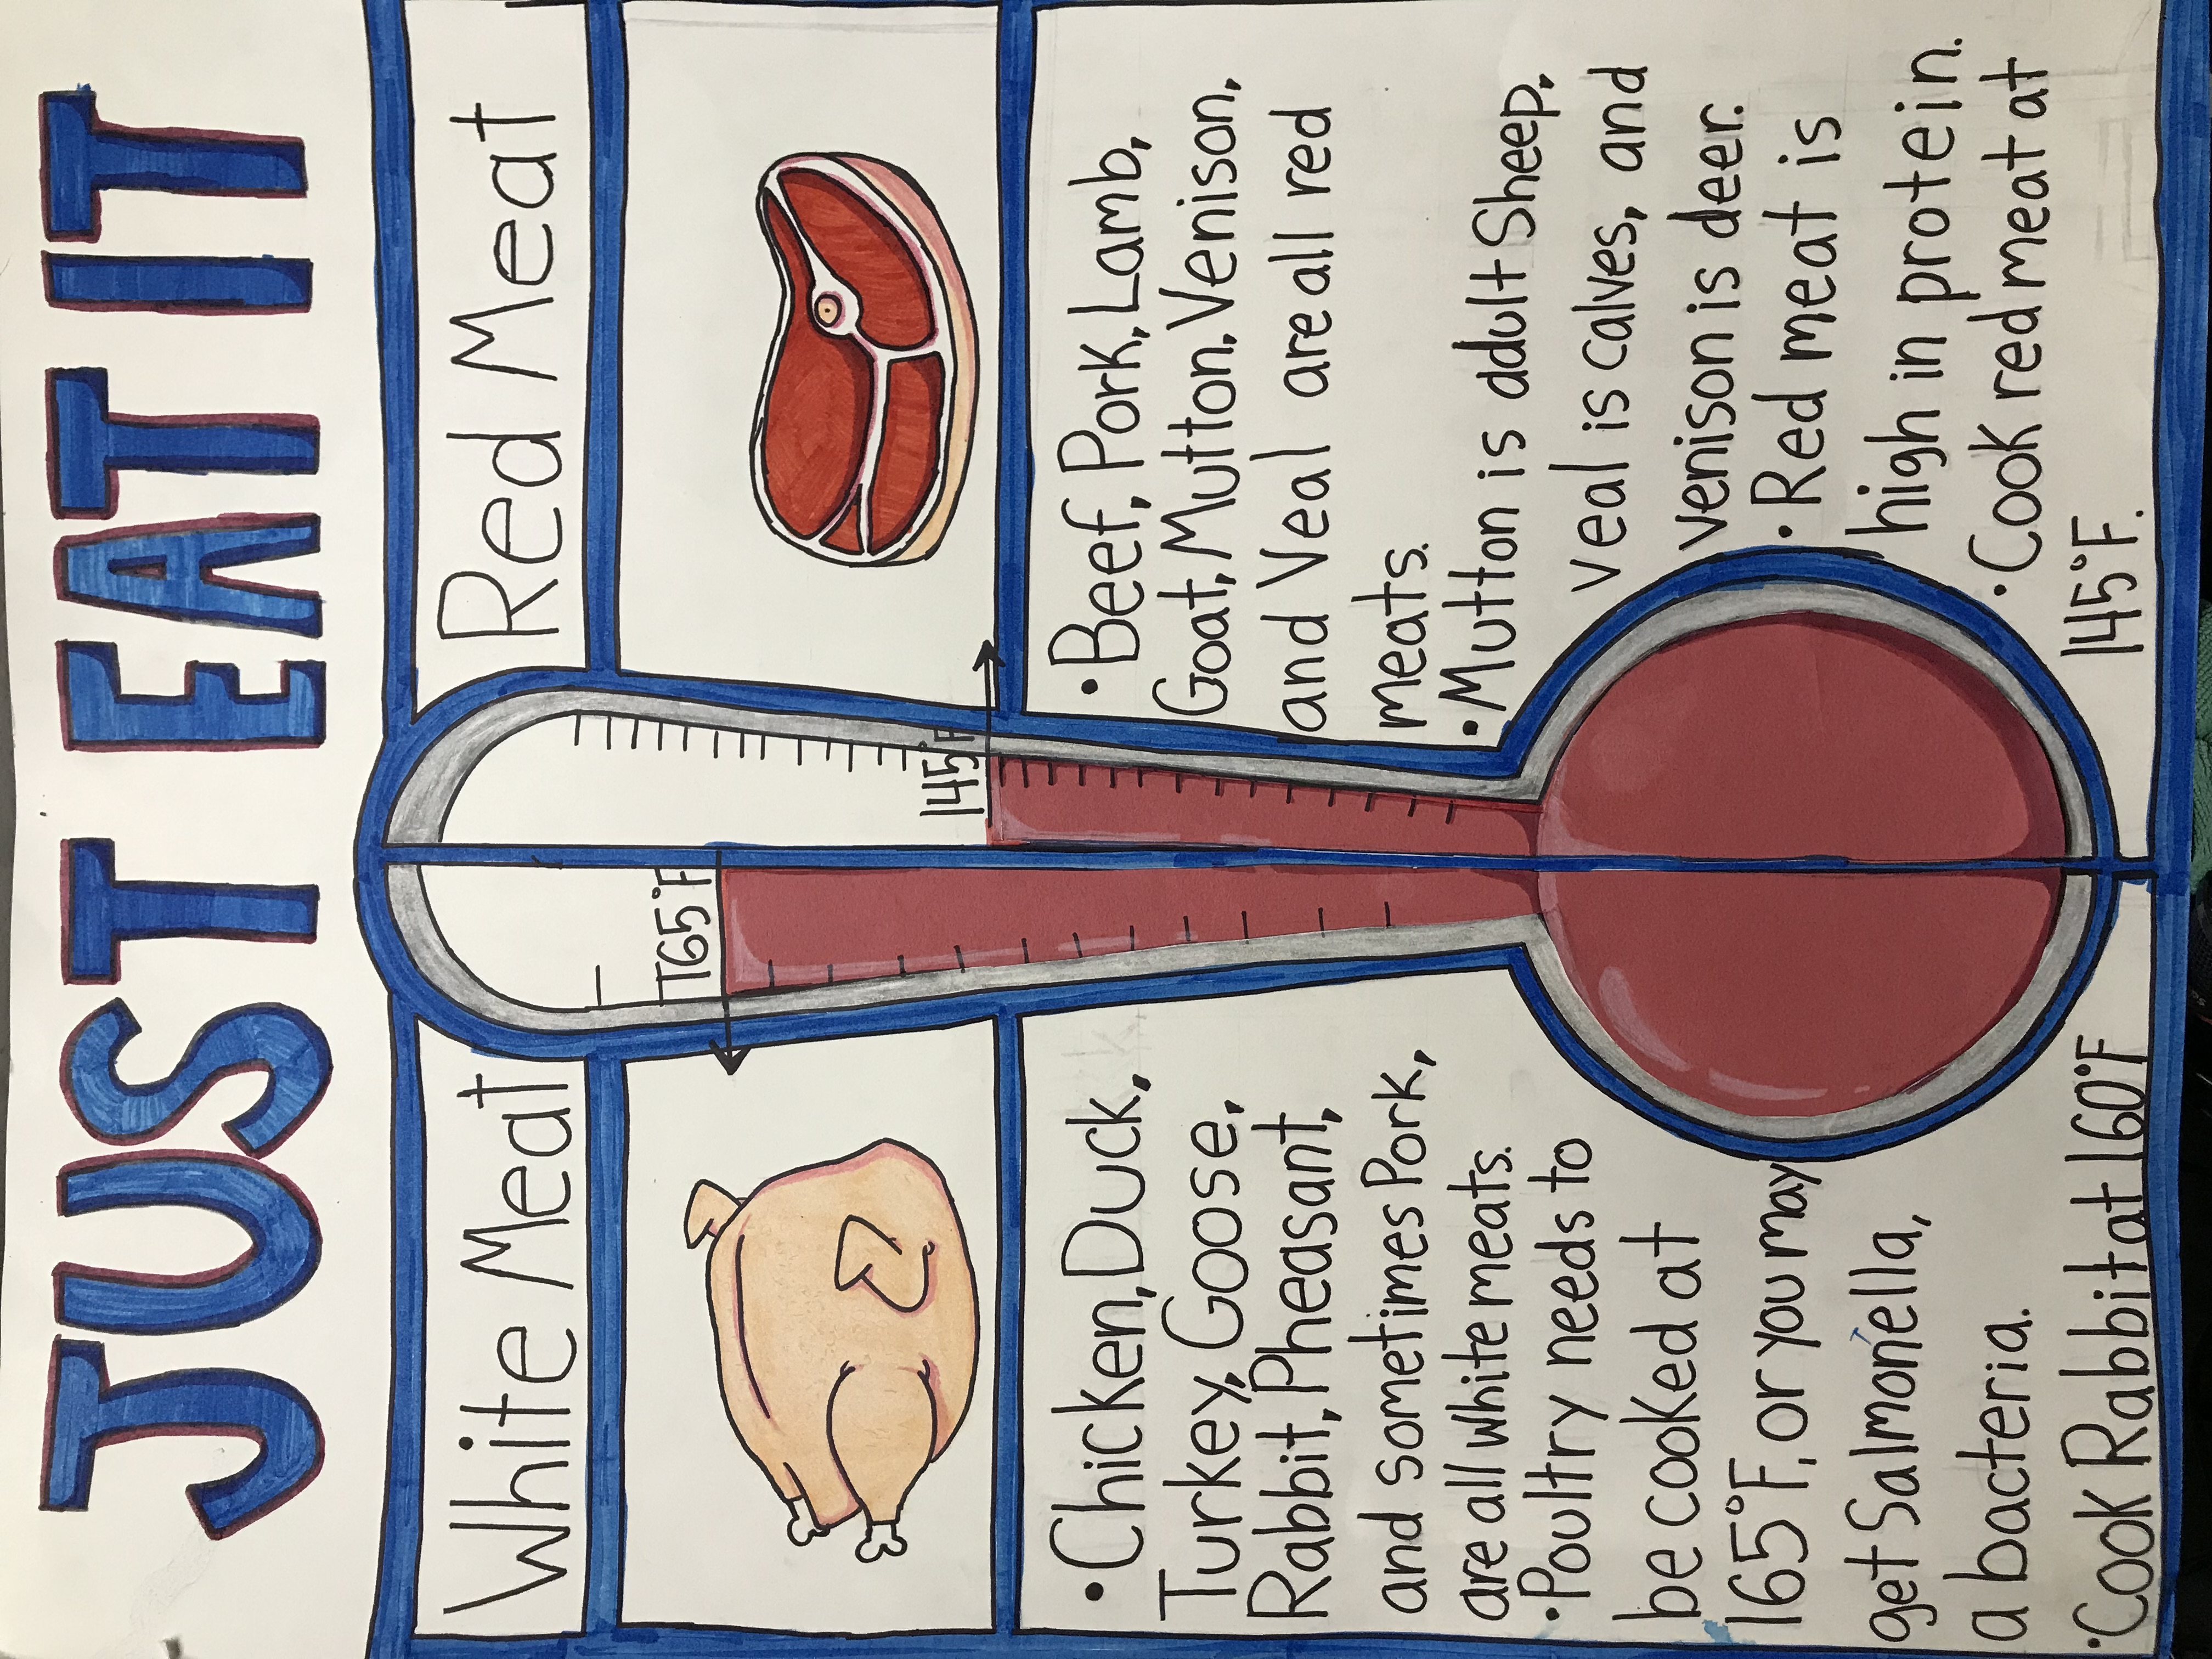 JUST EAT IT
White Meat
165°F
• Chicken, Duck,
Turkey, Goose,
Rabbit, Pheasant,
and sometimes Pork,
are all white meats.
• Poultry needs to
be cooked at
165°F, or you may
get Salmonella,
a bacteria.
• Cook Rabbit at 160°F
Red Meat
145°F
• Beef, Pork, Lamb,
Goat, Mutton, Venison,
and Veal are all red
meats.
• Mutton is adult Sheep,
veal is calves, and
venison is deer.
• Red meat is
high in protein.
• Cook red meat at
145°F.